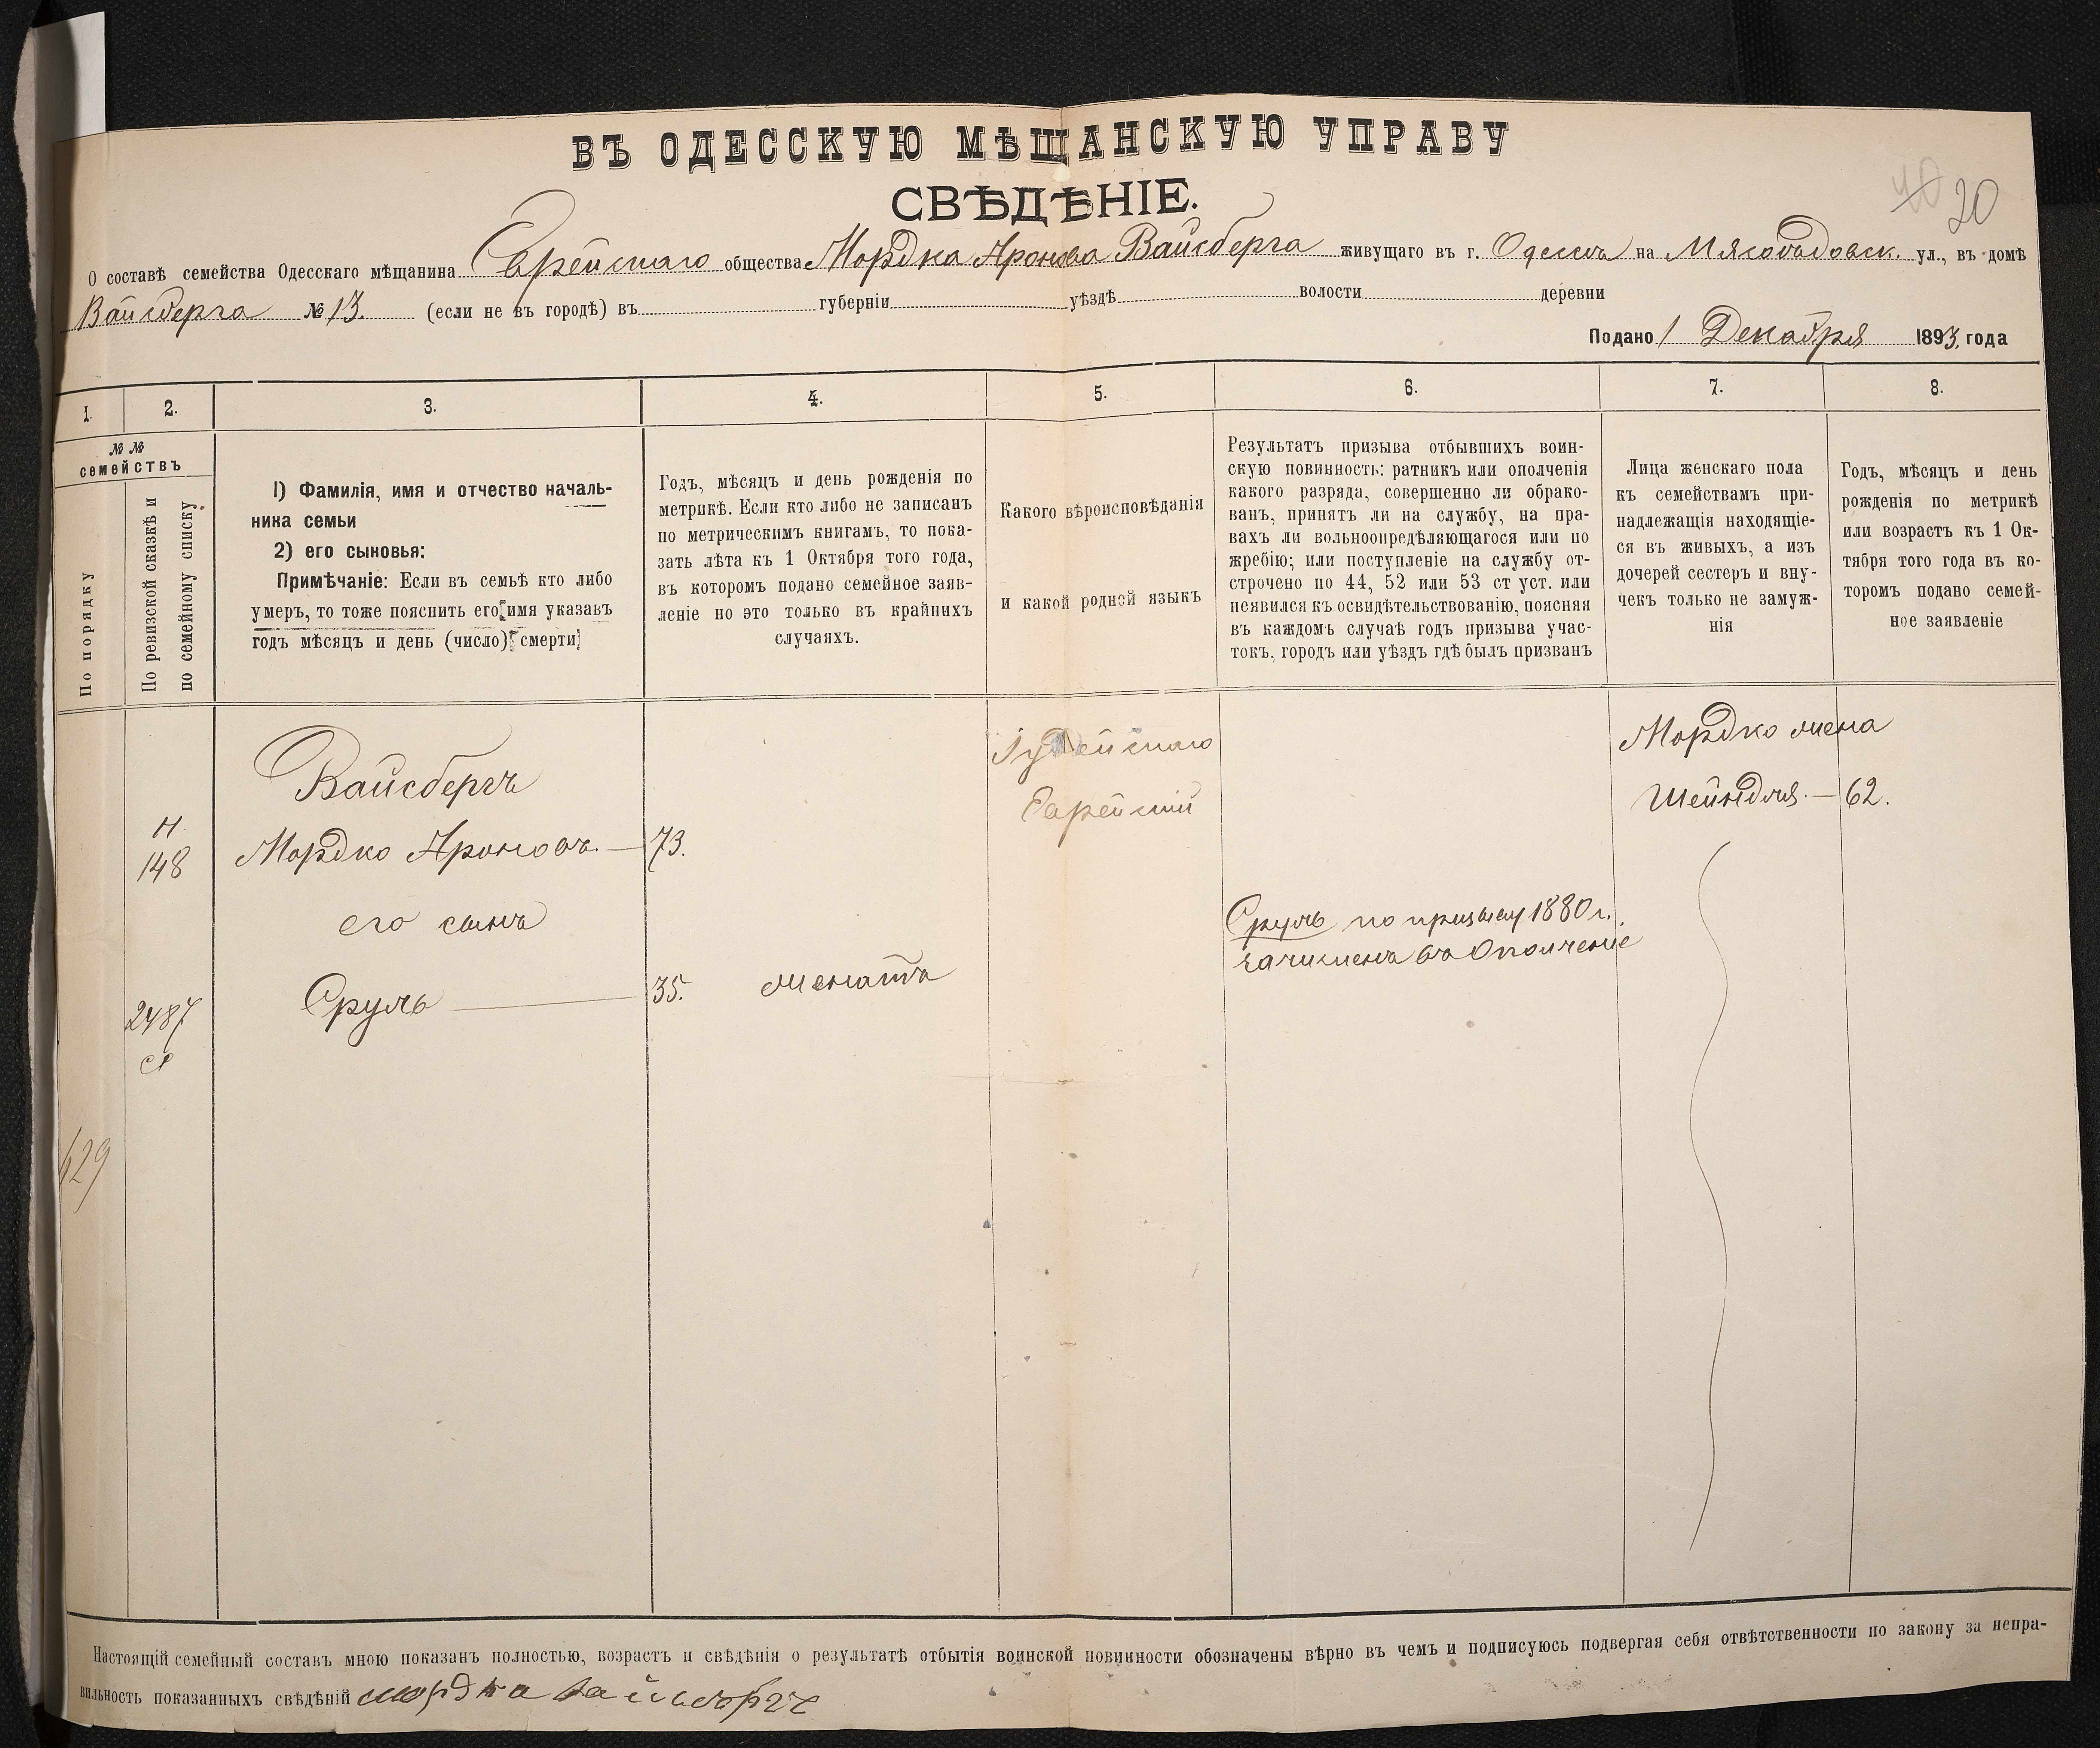 40 20
ВЪ ОДЕССКУЮ МѢЩАНСКУЮ УПРАВУ
СВѢДѢНІЕ.
О составѣ семейства Одесскаго мѣщанина Еврейскаго общества Мордка Аронова Вайсберга живущаго въ г. Одессѣ на Мясоѣдовск. ул., въ домѣ
Вайсберга № 13. (если не въ городѣ) въ губерніи уѣздѣ волости деревни
Подано 1 Декабря 1893, года
1. 2. 3. 4. 5. 6. 7. 8.
№ №
семействъ
По порядку
По ревизской сказкѣ и
по семейному списку
1) Фамилія, имя и отчество началь-
ника семьи
2) его сыновья:
Примѣчаніе: Если въ семьѣ кто либо
умеръ, то тоже пояснить его имя указавъ
годъ мѣсяцъ и день (число) смерти
Годъ, мѣсяцъ и день рожденія по
метрикѣ. Если кто либо не записанъ
по метрическимъ книгамъ, то пока-
зать лѣта къ 1 Октября того года,
въ которомъ подано семейное заяв-
леніе но это только въ крайнихъ
случаяхъ.
Какого вѣроисповѣданія
и какой родной языкъ
Результатъ призыва отбывшихъ воин-
скую повинность: ратникъ или ополченія
какого разряда, совершенно ли обрако-
ванъ, принятъ ли на службу, на пра-
вахъ ли вольноопредѣляющагося или по
жребію; или поступленіе на службу от-
строчено по 44, 52 или 53 ст уст. или
неявился къ освидѣтельствованію, поясняя
въ каждомъ случаѣ годъ призыва учас-
токъ, городъ или уѣздъ гдѣ былъ призванъ
Лица женскаго пола
къ семействамъ при-
надлежащія находящіе-
ся въ живыхъ, а изъ
дочерей сестеръ и вну-
чекъ только не замуж-
нія
Годъ, мѣсяцъ и день
рожденія по метрикѣ
или возрастъ къ 1 Ок-
тября того года въ ко-
торомъ подано семей-
ное заявленіе
Вайсбергъ
Іудейскаго
Еврейскій
Мордко жена
Шейндля. — 62.
Н
148
Мордко Ароновъ. — 73.
его сынъ
Сруль по призыву 1880 г.
зачисленъ въ Ополченіе
2487
Сруль — 35. женатъ
629
Настоящій семейный составъ мною показанъ полностью, возрастъ и свѣдѣнія о результатѣ отбытія воинской повинности обозначены вѣрно въ чемъ и подписуюсь подвергая себя отвѣтственности по закону за непра-
вильность показанныхъ свѣдѣній мордка вайсбергъ